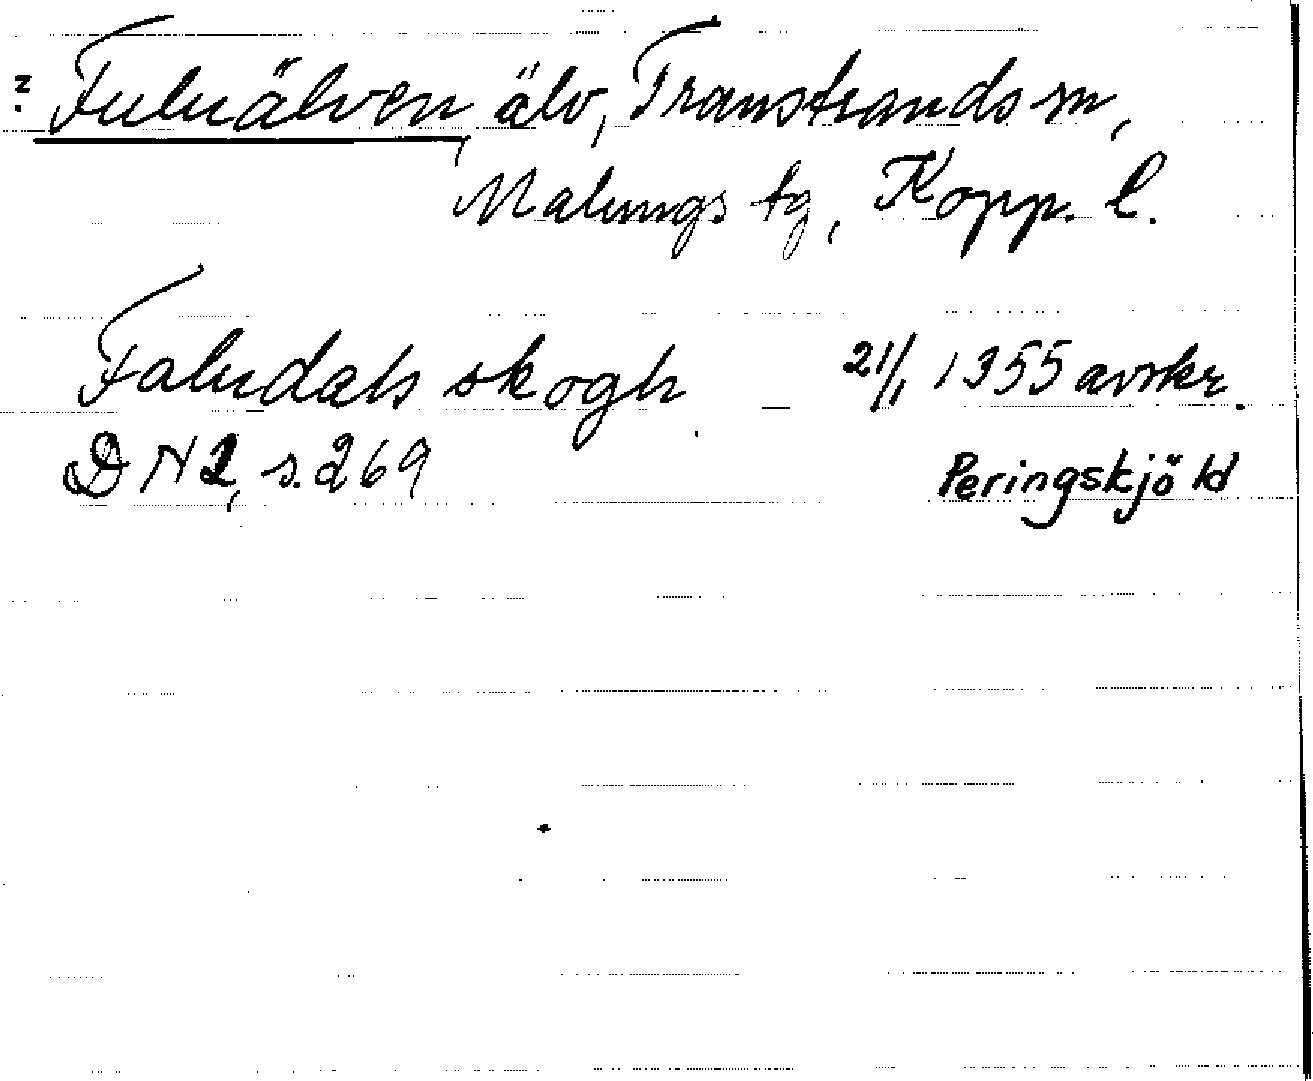 ? Fuluälven, älv, Transtrands sn,
Malungs tg, Kopp. l.
Faludals skogh 21/1 1355 avskr.
DN 2, s. 269 Peringskjöld